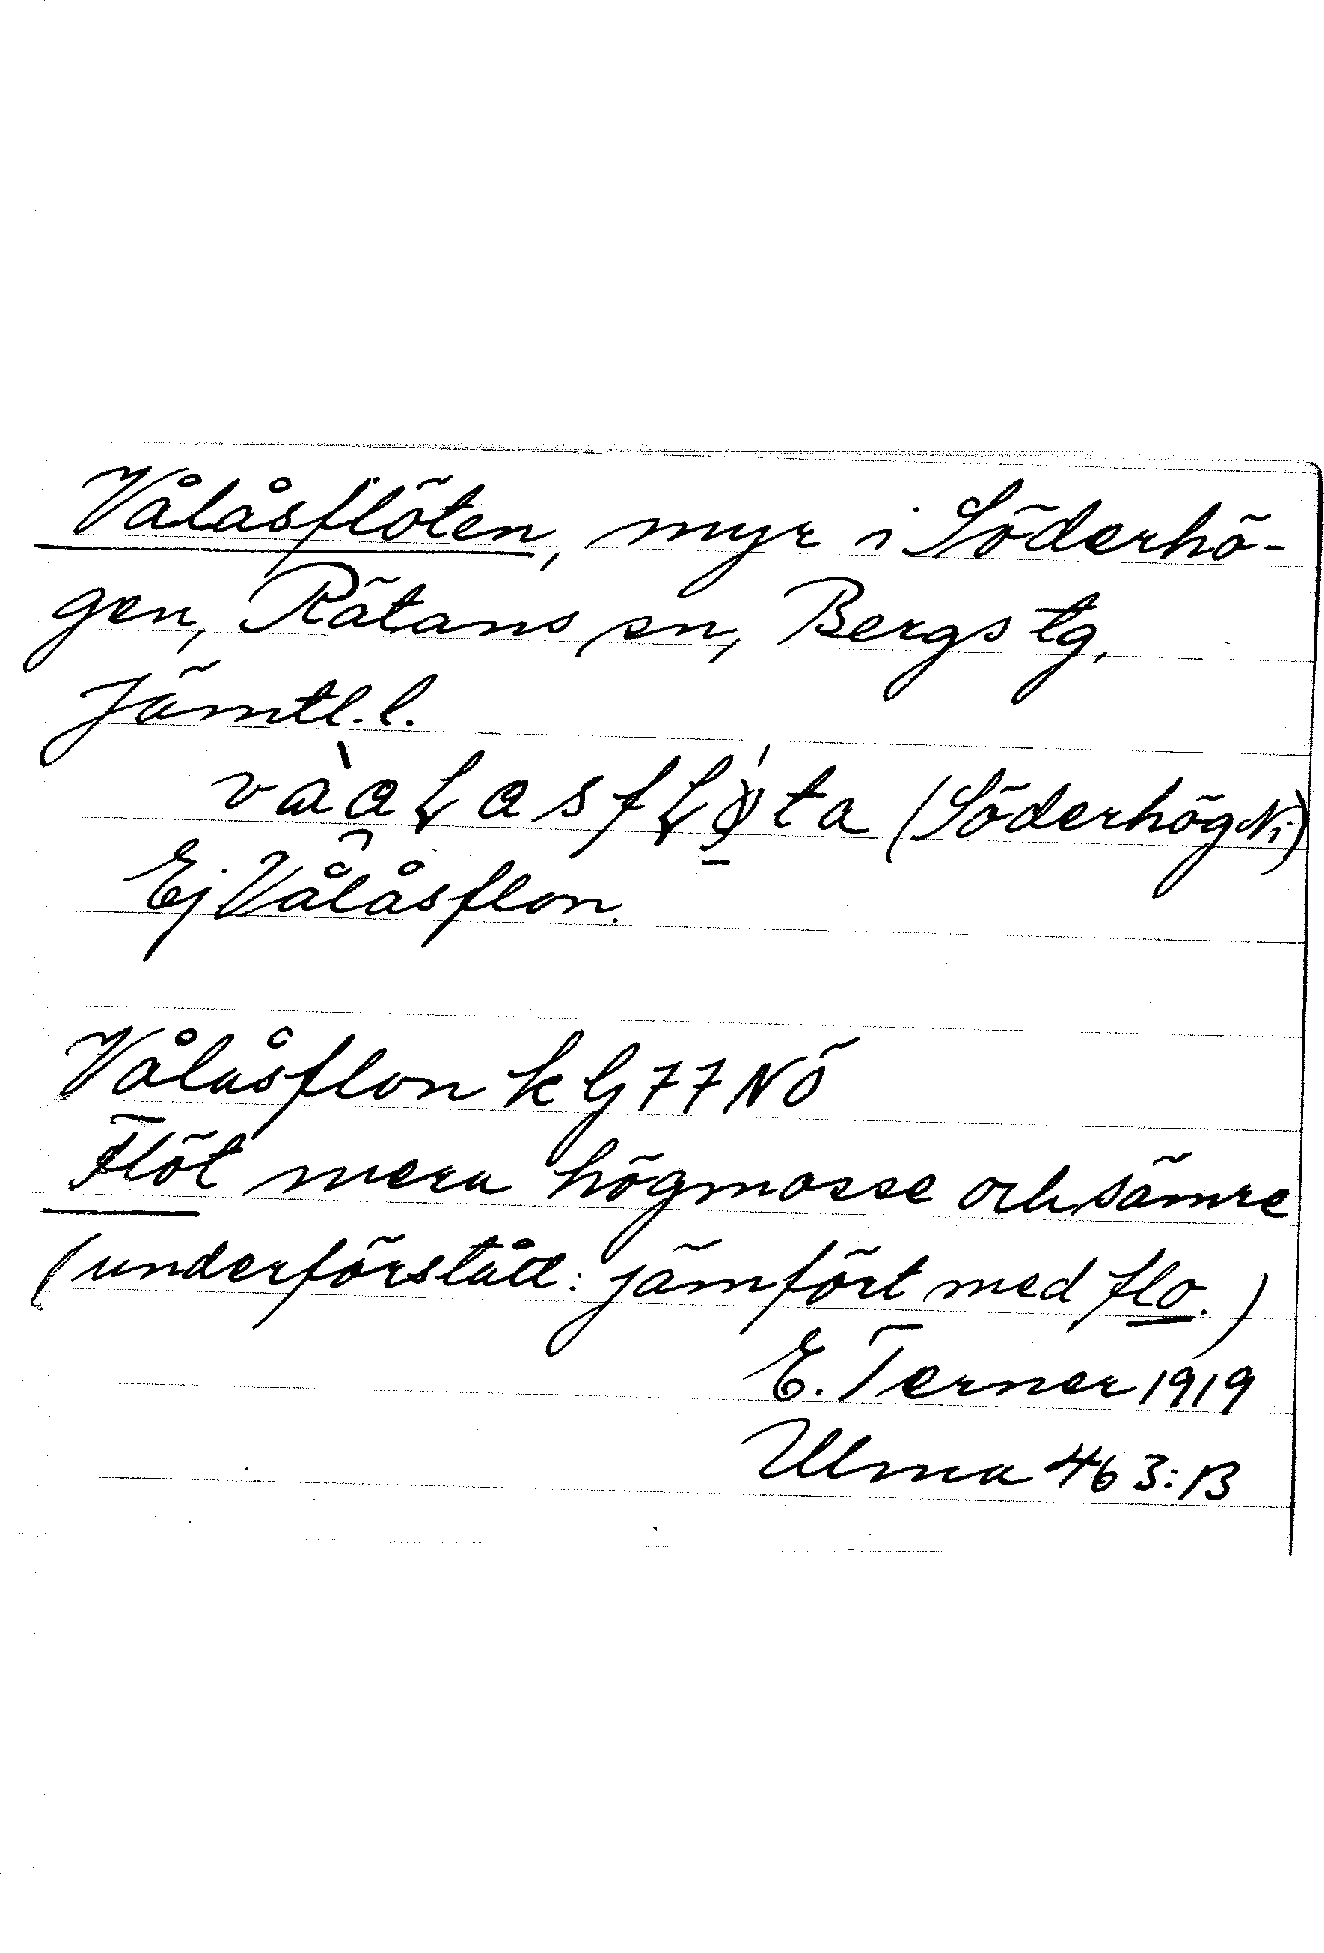 Vålåsflöten, myr i Söderhö-
gen, Rätans sn, Bergs tg,
Jämtl. l.
(Söderhög Ni)
Ej Vålåsflon.
Vålåsflon k G 77 NÖ
Flöt mera högmosse och sämre
(underförstått: jämfört med flo.)
E. Terner 1919
Ulma 463:B